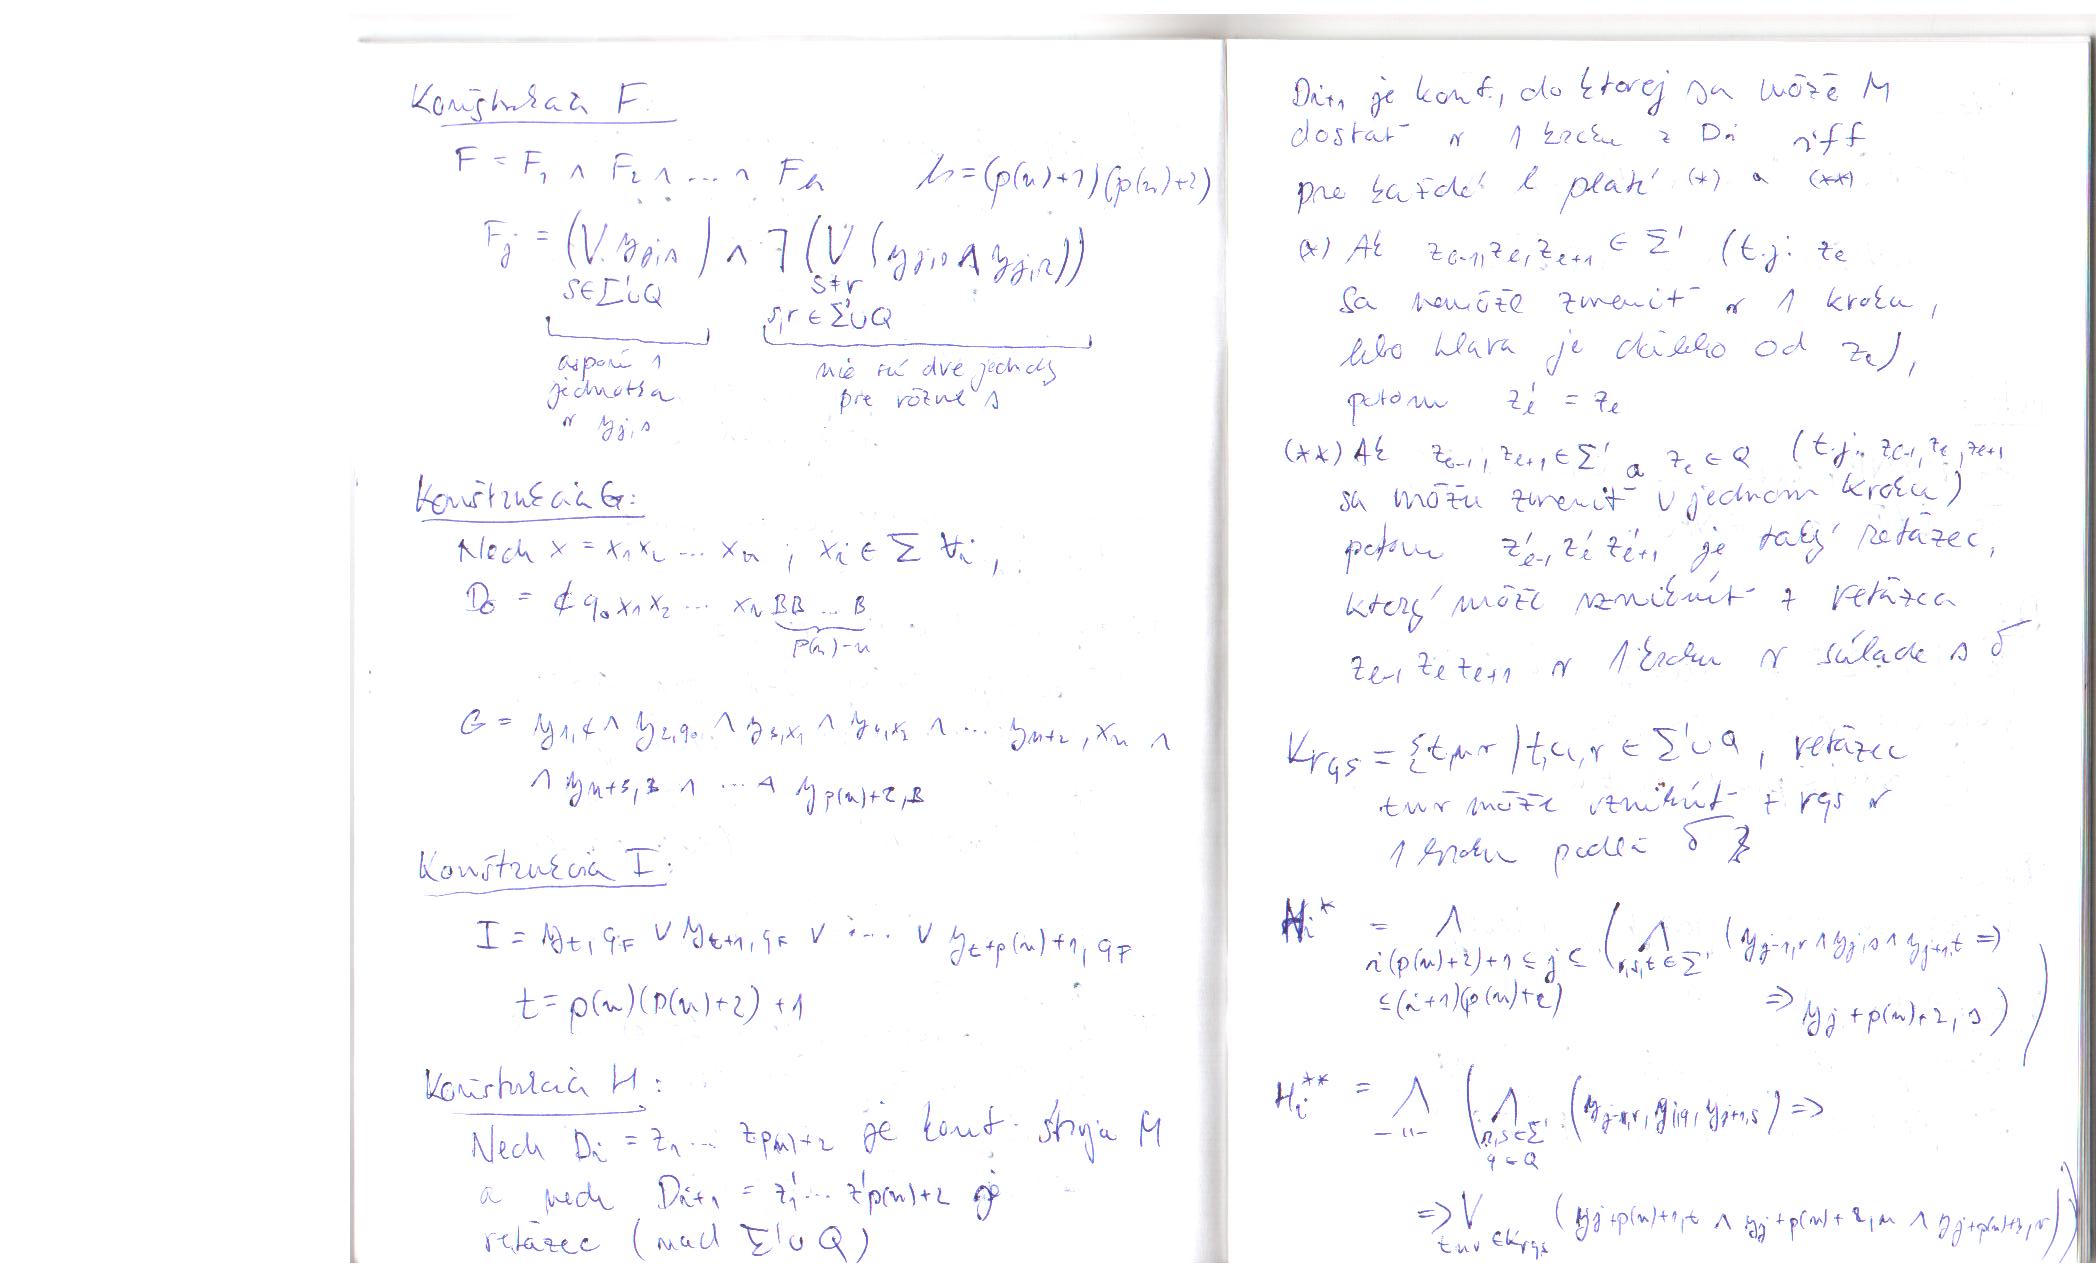 Konštrukcia F.
F = F₁ ∧ F₂ ∧ ... ∧ Fₕ h = (p(n)+1)(p(n)+2)
Fⱼ = (⋁ yⱼ,ₛ) ∧ ¬(⋁ (yⱼ,ₛ ∧ yⱼ,ᵣ))
s∈Σ'∪Q s≠r
s,r ∈ Σ'∪Q
aspoň 1 nie sú dve jednotky
jednotka pre rôzne s
v yⱼ,ₛ
Konštrukcia G:
Nech x = x₁x₂ ... xₙ ; xᵢ ∈ Σ ∀i,
D₀ = ¢q₀x₁x₂ ... xₙ BB ... B
p(n)-n
G = y₁,¢ ∧ y₂,q₀ ∧ y₃,x₁ ∧ y₄,x₂ ∧ ... yₙ₊₂,xₙ ∧
∧ yₙ₊₃,B ∧ ... ∧ y_{p(n)+2,B}
Konštrukcia I:
I = y_{t,q_F} ∨ y_{t+1,q_F} ∨ ... ∨ y_{t+p(n)+1,q_F}
t = p(n)(p(n)+2)+1
Konštrukcia H:
Nech Dᵢ = z₁ ... z_{p(n)+2} je konf. stroja M
a nech Dᵢ₊₁ = z'₁ ... z'_{p(n)+2} je
reťazec (nad Σ'∪Q)
Dᵢ₊₁ je konf., do ktorej sa môže M
dostať v 1 kroku z Dᵢ iff
pre každé l platí (*) a (**)
(*) Ak z_{l-1}, z_l, z_{l+1} ∈ Σ' (t.j: z_l
sa nemôže zmeniť v 1 kroku,
lebo hlava je ďaleko od z_l),
potom z'_l = z_l
(**) Ak z_{l-1}, z_{l+1} ∈ Σ' a z_l ∈ Q (t.j. z_{l-1}, z_l, z_{l+1}
sa môžu zmeniť v jednom kroku)
potom z'_{l-1} z'_l z'_{l+1} je taký reťazec,
ktorý môže vzniknúť z reťazca
z_{l-1} z_l z_{l+1} v 1 kroku v súlade s δ
K_{rqs} = {tuv | t,u,v ∈ Σ'∪Q, reťazec
tuv môže vzniknúť z rqs v
1 kroku podľa δ}
Hᵢ* = ⋀ (⋀ (y_{j-1,r} ∧ y_{j,s} ∧ y_{j+1,t} ⇒
i(p(n)+2)+1 ≤ j ≤ r,s,t ∈ Σ'
≤(i+1)(p(n)+2) ⇒ y_{j+p(n)+2,s}))
Hᵢ** = ⋀ (⋀ (y_{j-1,r}, y_{j,q}, y_{j+1,s}) ⇒
-"- r,s∈Σ'
q∈Q
⇒ ⋁ (y_{j+p(n)+1,t} ∧ y_{j+p(n)+2,u} ∧ y_{j+p(n)+3,v}))
tuv ∈ K_{rqs}